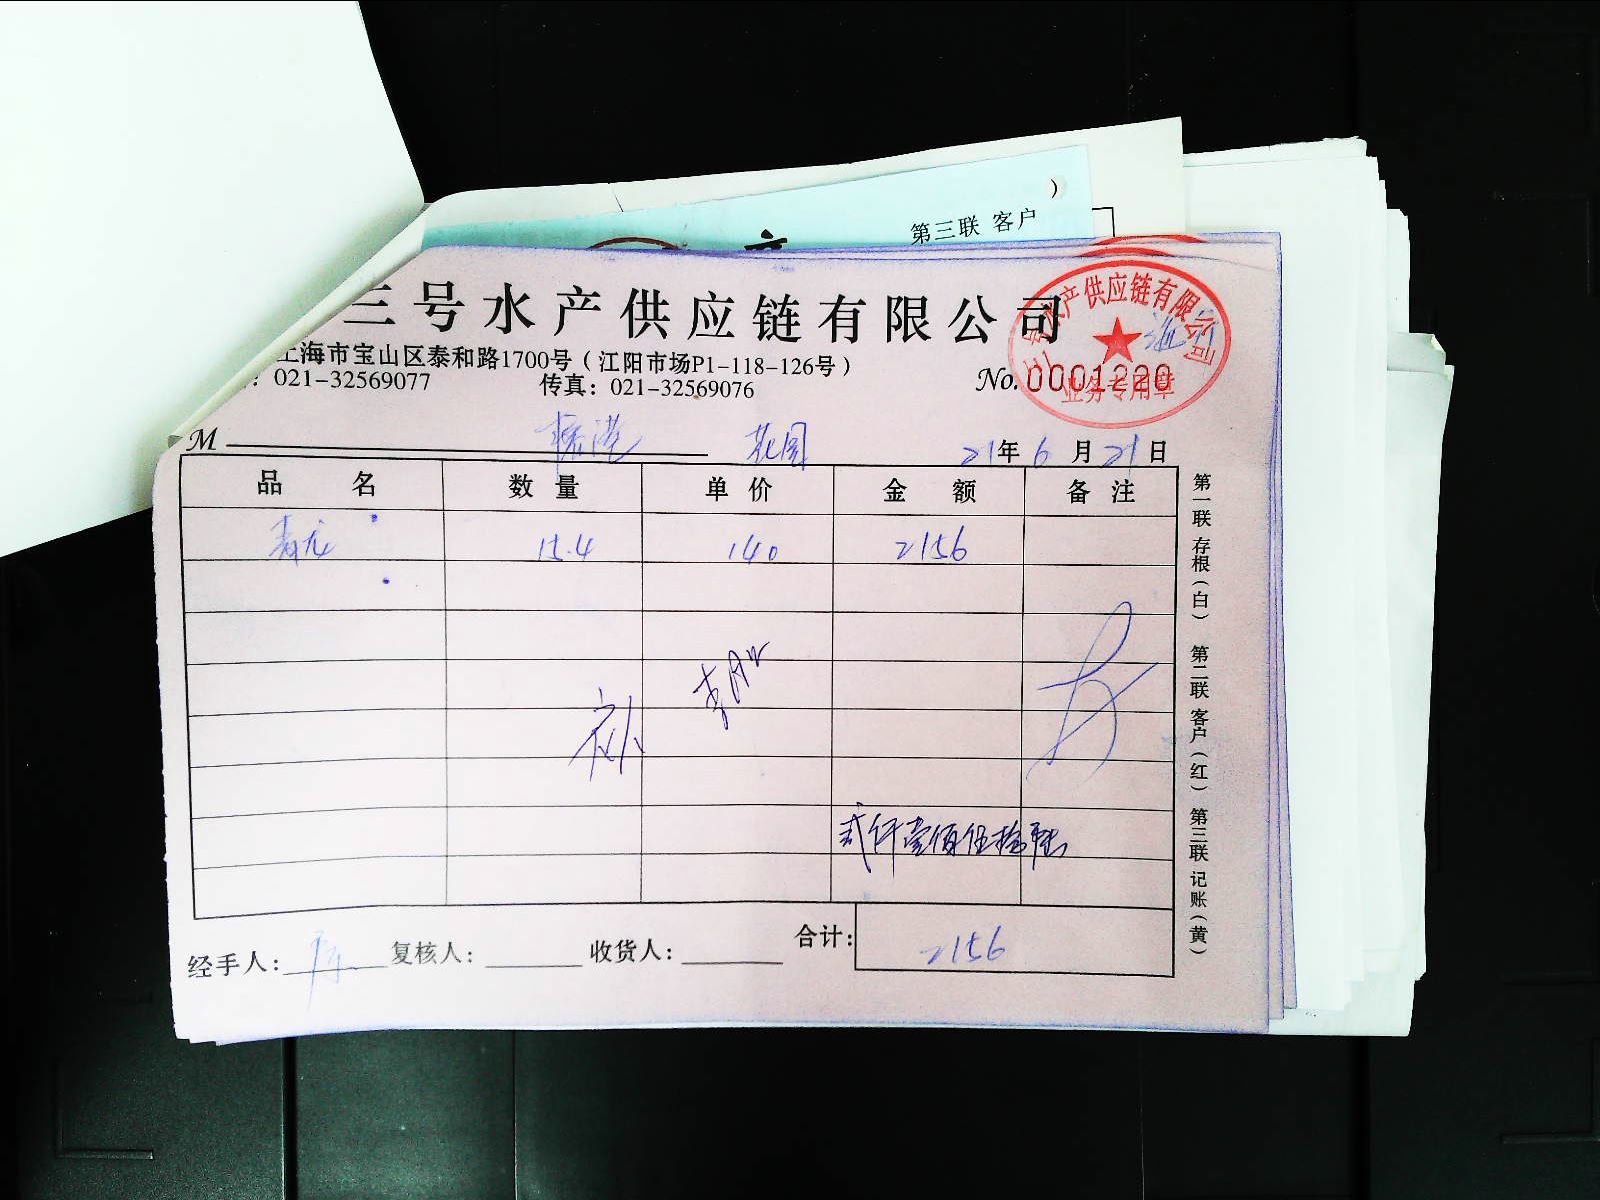 第三联 客户
三号水产供应链有限公司
上海市宝山区泰和路1700号（江阳市场P1-118-126号）
：021-32569077 传真：021-32569076
No. 0001220
三号水产供应链有限公司
业务专用章
M 花园 21年6月21日
品名 数量 单价 金额 备注
青龙 15.4 140 2156
贰仟壹佰伍拾陆
经手人： 复核人： 收货人： 合计： 2156
第一联 存根（白） 第二联 客户（红） 第三联 记账（黄）